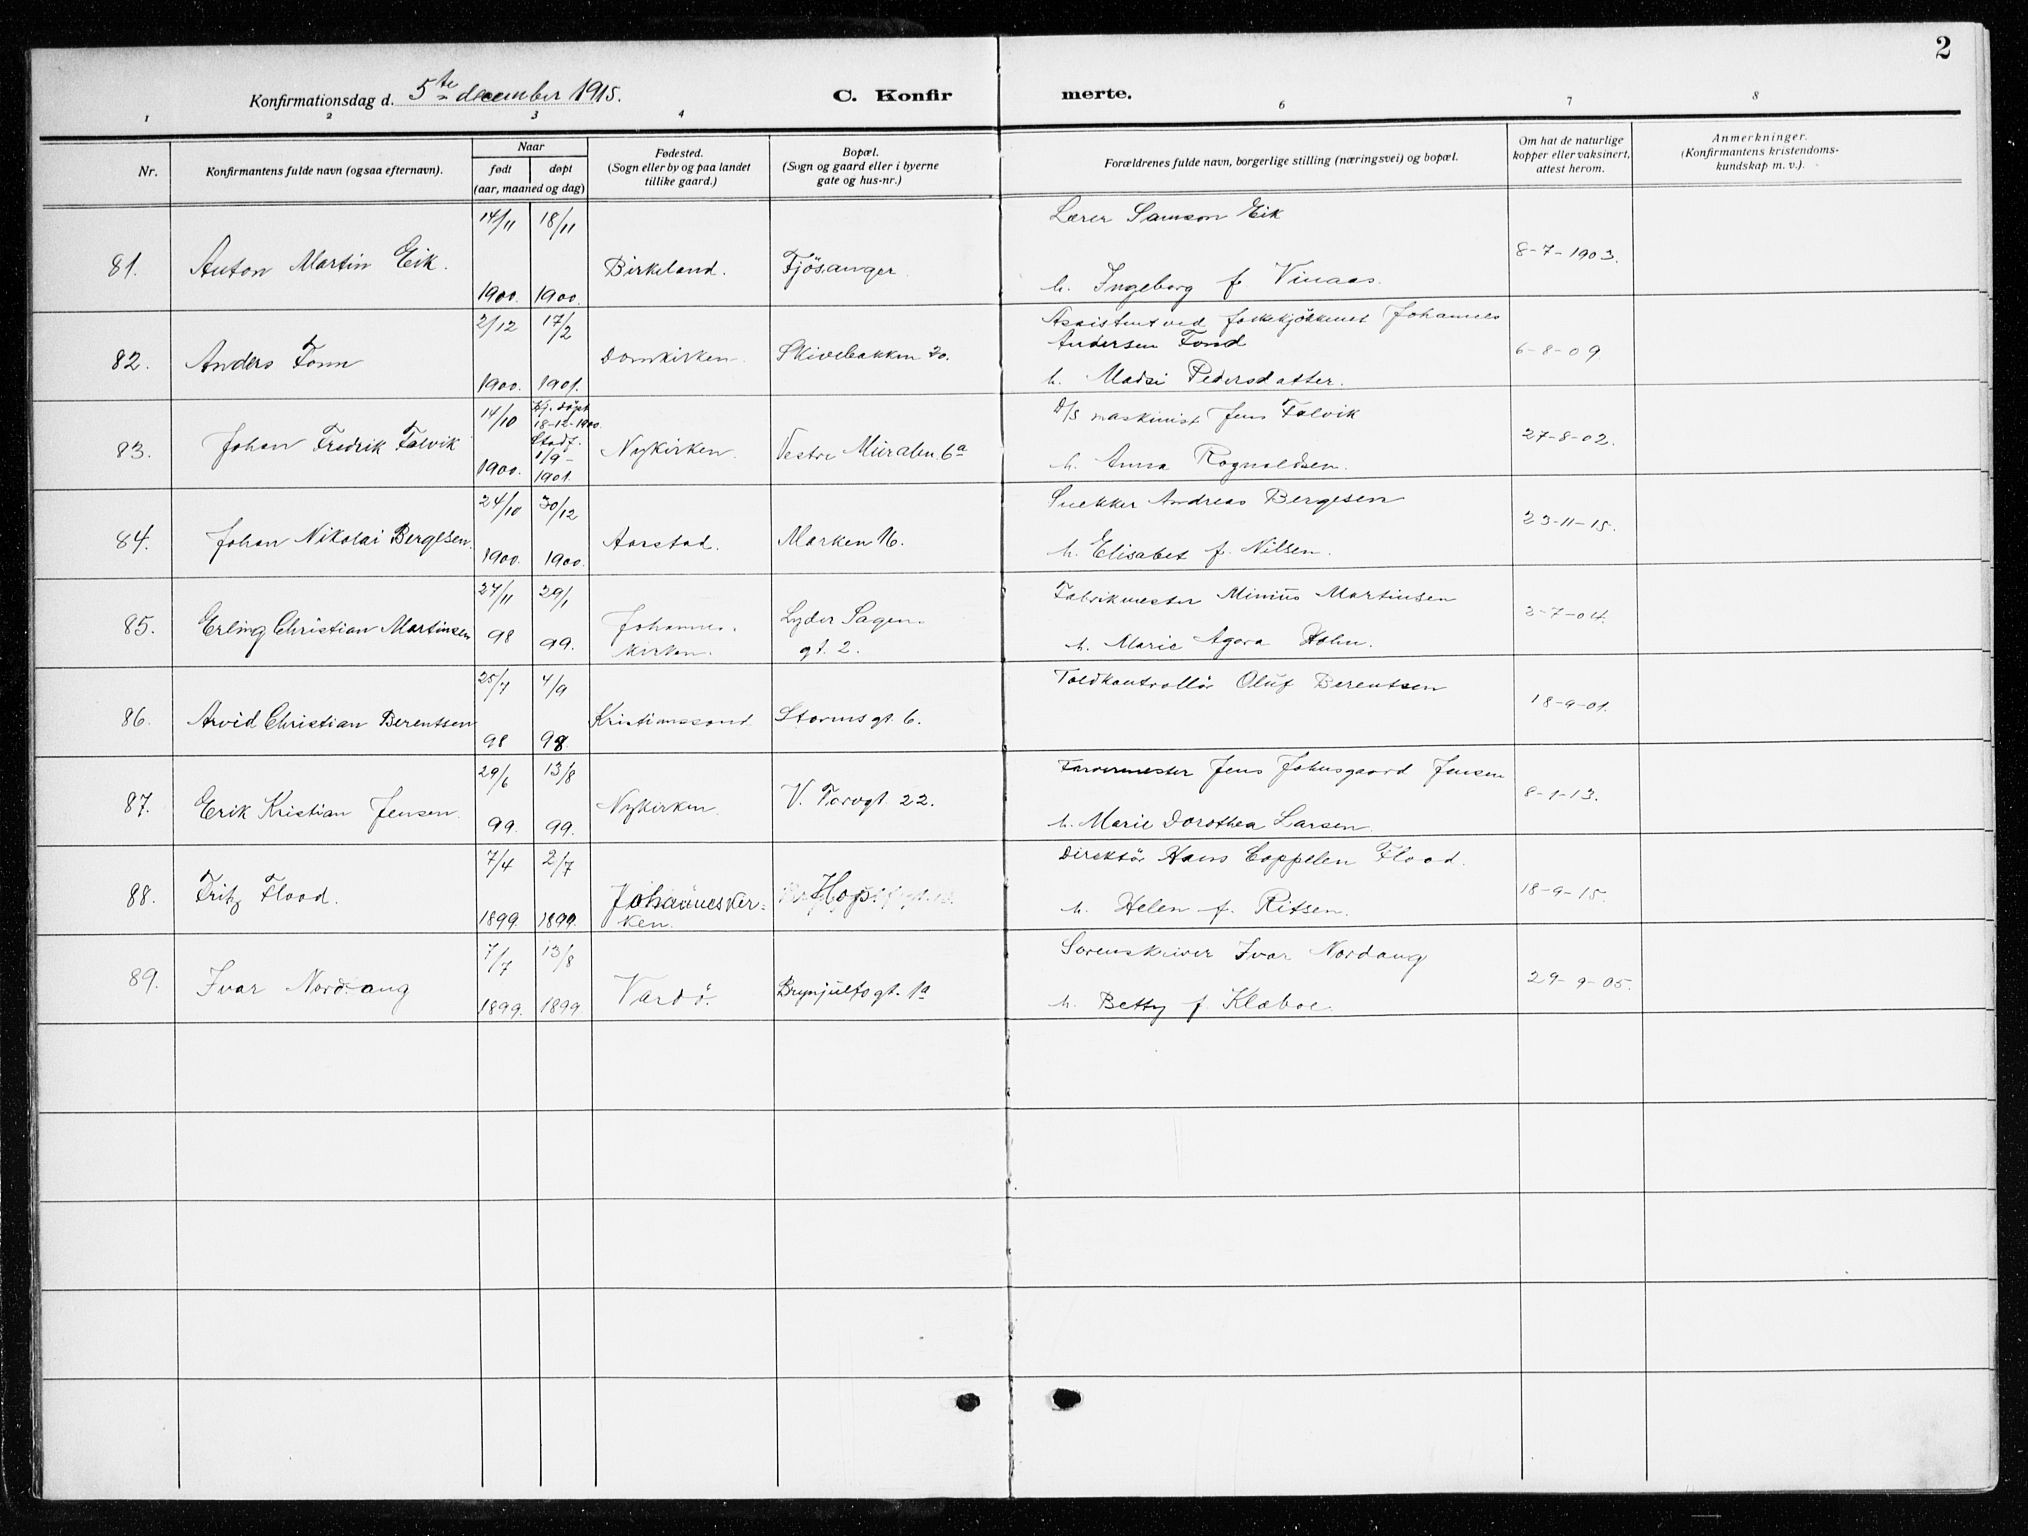 2
Konfirmationsdag d. 5te december 1915.
C. Konfir merte.
1 2 3 4 6 7 8
Nr.
Konfirmantens fulde navn (ogsaa efternavn).
Naar
født døpt
(aar, maaned og dag)
Fødested.
(Sogn eller by og paa landet
tillike gaard.)
Bopæl.
(Sogn og gaard eller i byerne
gate og hus-nr.)
Forældrenes fulde navn, borgerlige stilling (næringsvei) og bopæl.
Om hat de naturlige
kopper eller vaksinert,
attest herom.
Anmerkninger.
(Konfirmantens kristendoms-
kundskap m. v.).
14/11 18/11 Lærer Samson Eik
81. Anton Martin Eik. Birkeland. Fjösanger. 8-7-1903.
1900. 1900. h. Ingeborg f. Vinaas.
2/12 17/2 Assistent ved folkekjökkenet Johannes
Andersen Fond
82. Anders Fonn Domkirken. Skivebakken 20. 6-8-09
1900. 1901. h. Madsi Pedersdatter.
14/10 Hj. döpt D/S maskinist Jens Falvik
18-12-1900.
Stadf.
83. Johan Fredrik Falvik Nykirken. Vestre Muralm. 6a 27-8-02.
1/9-
1900. 1901. h. Anna Rognaldsen.
24/10 30/12 Snekker Andreas Bergesen
84. Johan Nikolai Bergesen. Aarstad. Marken 16. 23-11-15.
1900. 1900. h. Elisabet f. Nilsen.
27/11 29/1 Fabrikmester Minius Martinsen
85. Erling Christian Martinsen Johannes- Lyder Sagen- 2-7-04.
98 99. kirken. gt. 2. h. Marie Agara Holm.
25/7 4/9 Toldkontrollör Oluf Berentsen
86. Arvid Christian Berentsen Kristianssund Stormsgt. 6. 18-9-01.
98 98.
29/6 13/8 Farvermester Jens Johnsgaard Jensen
87. Erik Kristian Jensen. Nykirken. V. Torvgt. 22. 8-1-13.
99. 99. h. Marie Dorothea Larsen.
7/4 2/7 Direktör Hans Coppelen Flood.
88. Fritz Flood. Johanneskir- Hop 18-9-15.
1899. 1899. ken. h. Helen f. Ritsen.
7/7 13/8 Sorenskriver Ivar Nordang
89. Ivar Nordang Vardö. Brynjulfsgt. 1a 29-9-05.
1899. 1899. h. Betty f. Klæboe.